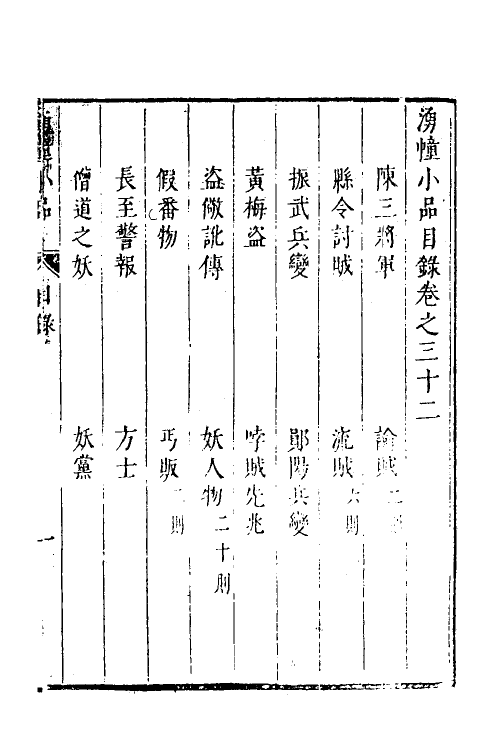 湧幢小品目錄卷之三十二
陳三將軍 諭賊二則
縣令討賊 流賊六則
振武兵變 鄖陽兵變
黃梅盜 哱賊先兆
盜倣訛傳 妖人物二十則
假番物 丐販二則
長至警報 方士
僧道之妖 妖黨
小品 目錄 一